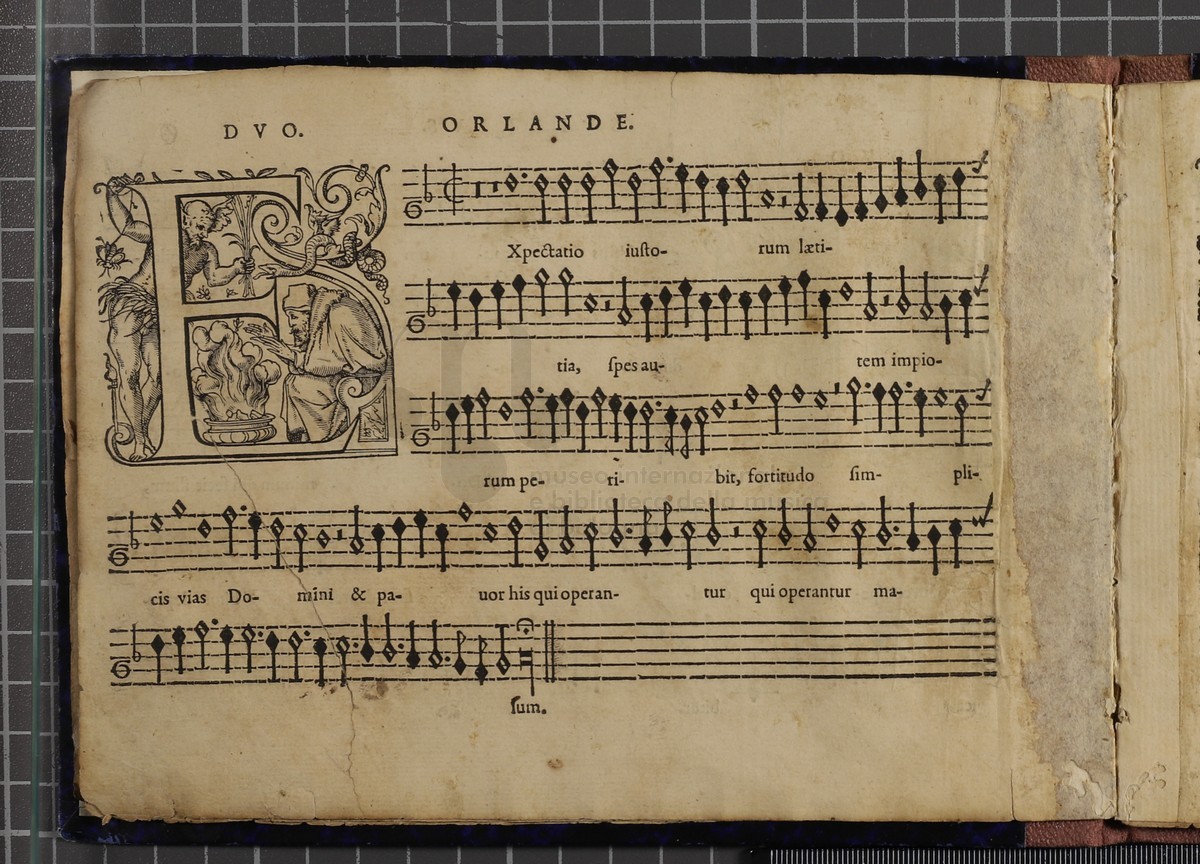 DVO. ORLANDE.
EXpectatio iusto- rum læti-
tia, spes au- tem impio-
rum pe- ri- bit, fortitudo sim- pli-
cis vias Do- mini & pa- uor his qui operan- tur qui operantur ma-
sum.
museo internaz
e biblioteca della musica